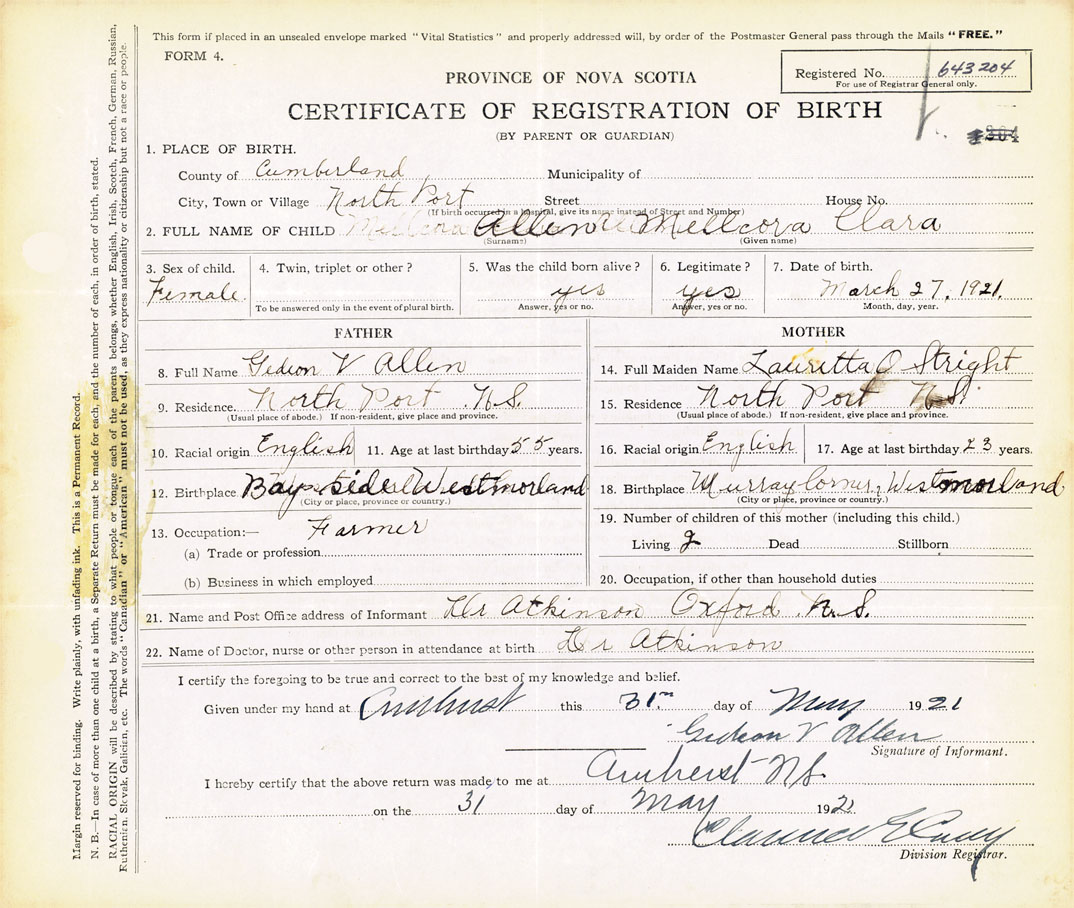 This form if placed in an unsealed envelope marked "Vital Statistics" and properly addressed will, by order of the Postmaster General pass through the Mails "FREE."
FORM 4.
Registered No. 643204
For use of Registrar General only.
PROVINCE OF NOVA SCOTIA
CERTIFICATE OF REGISTRATION OF BIRTH
(BY PARENT OR GUARDIAN)
1. PLACE OF BIRTH.
County of Cumberland Municipality of
City, Town or Village North Port Street House No.
(If birth occurred in a hospital, give its name instead of Street and Number)
2. FULL NAME OF CHILD Allen Mellcora Clara
(Surname) (Given name)
3. Sex of child. 4. Twin, triplet or other? 5. Was the child born alive? 6. Legitimate? 7. Date of birth.
Female yes yes March 27, 1921.
To be answered only in the event of plural birth. Answer, yes or no. Answer, yes or no. Month, day, year.
FATHER MOTHER
8. Full Name Gedeon V Allen
14. Full Maiden Name Lauritta O Stright
9. Residence. North Port N.S.
15. Residence North Port N.S.
(Usual place of abode.) If non-resident, give place and province.
(Usual place of abode.) If non-resident, give place and province.
10. Racial origin English 11. Age at last birthday 55 years.
16. Racial origin English 17. Age at last birthday 23 years.
12. Birthplace Bayside Westmorland
18. Birthplace Murray Corner, Westmorland
(City or place, province or country.)
(City or place, province or country.)
13. Occupation:— Farmer
19. Number of children of this mother (including this child.)
(a) Trade or profession
Living 2 Dead Stillborn
(b) Business in which employed
20. Occupation, if other than household duties
21. Name and Post Office address of Informant Dr Atkinson Oxford N.S.
22. Name of Doctor, nurse or other person in attendance at birth Dr Atkinson
I certify the foregoing to be true and correct to the best of my knowledge and belief.
Given under my hand at Amherst this 31 day of May 1921
Gideon V Allen
Signature of Informant.
I hereby certify that the above return was made to me at Amherst NS.
on the 31 day of May 1921
Division Registrar.
Margin reserved for binding. Write plainly, with unfading ink. This is a Permanent Record.
N. B.—In case of more than one child at a birth, a Separate Return must be made for each, and the number of each, in order of birth, stated.
RACIAL ORIGIN will be described by stating to what people or tongue each of the parents belongs, whether English, Irish, Scotch, French, German, Russian,
Ruthenian, Slovak, Galician, etc. The words "Canadian" or "American" must not be used, as they express nationality or citizenship but not a race or people.